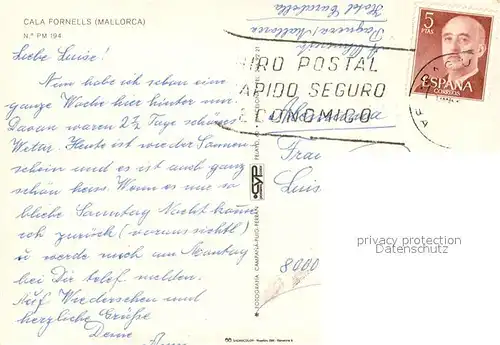 CALA FORNELLS (MALLORCA)
N.º PM 194
Liebe Luise!
Nun habe ich schon eine
ganze Woche hier hinter mir.
Davon waren 2½ Tage schönes
Wetter. Heute ist wieder Sonnen-
schein und es ist auch ganz
schön heiss. Wenn es
bliebe Sonntag Nacht komme
ich zurück (voraussichtl)
u werde mich am Montag
bei Dir telef melden.
Auf Wiedersehen und
herzliche Grüße
Deine
Hotel
Paguera/Mallorca
GIRO POSTAL
RAPIDO SEGURO
ECONOMICO
5
PTAS
ESPAÑA
CORREOS
Alemania
Frau
Luis
8000
privacy protection
AnsichtskartenVersand.com
CYP
FOTOGRAFIA CAMPAÑÁ-PUIG-FERRÁN